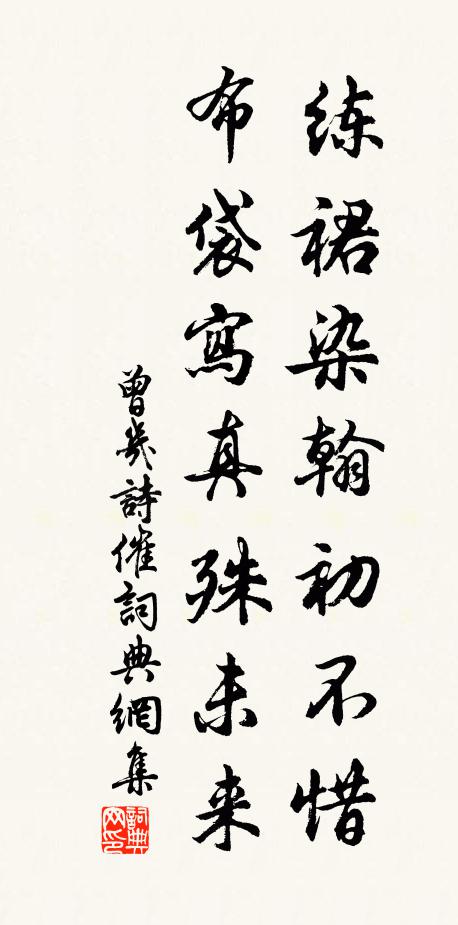 练裙染翰初不惜
布袋寫真殊未来
曾㡬詩傕詞典網集
詞典
网印